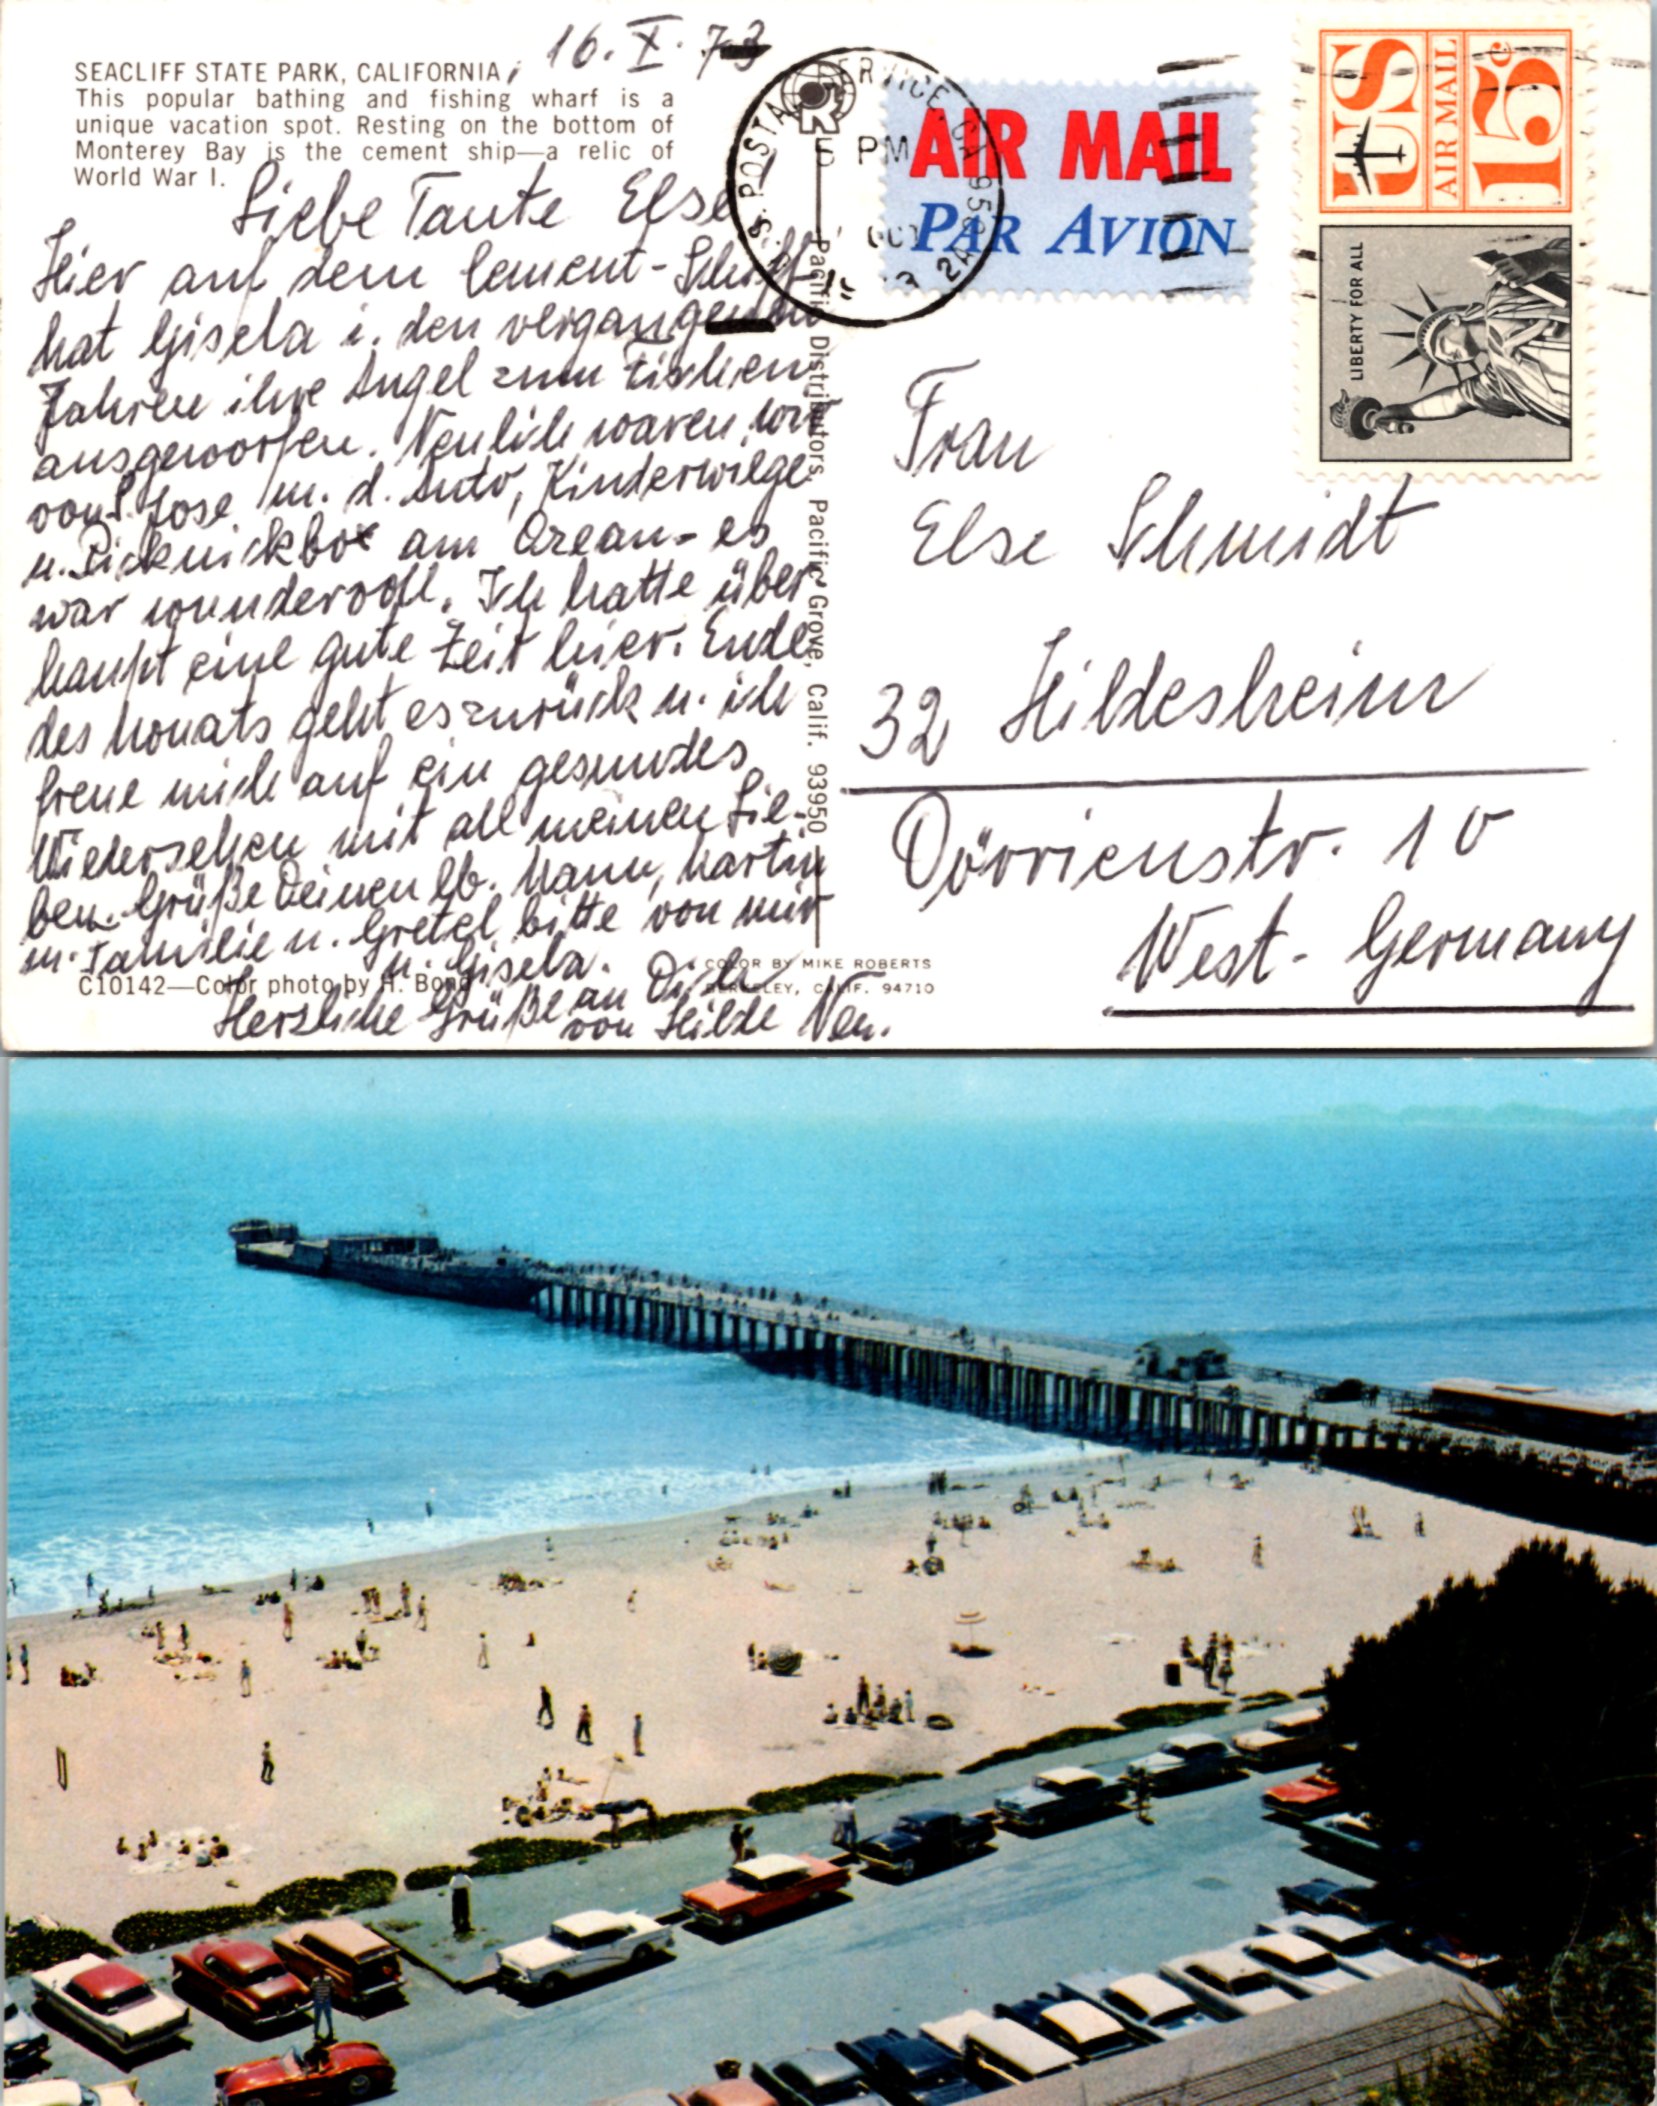 SEACLIFF STATE PARK, CALIFORNIA, 16. X. 73
This popular bathing and fishing wharf is a
unique vacation spot. Resting on the bottom of
Monterey Bay is the cement ship—a relic of
World War I.
Liebe Tante Else,
Hier auf dem Cement-Schiff
hat Gisela i. den vergangenen
Jahren ihre Angel zum Fischen
ausgeworfen. Neulich waren wir
von S. Jose m. d. Auto, Kinderwiege
u. Picknickbox am Ozean - es
war wundervoll. Ich hatte über
haupt eine gute Zeit hier. Ende
des Monats geht es zurück u. ich
freue mich auf ein gesundes
Wiedersehen mit all meinen Lie-
ben. Grüße Deinen lb. Mann, Martin
m. Familie u. Gretel bitte von mir
u. Gisela.
Herzliche Grüße an Dich
von Hilde
C10142—Color photo by H. Bond
Pacific Distributors, Pacific Grove, Calif. 93950
COLOR BY MIKE ROBERTS
BERKELEY, CALIF. 94710
U.S. POSTAL SERVICE, CA
PM
AIR MAIL
PAR AVION
US
AIR MAIL
15c
LIBERTY FOR ALL
Frau
Else Schmidt
32 Hildesheim
Dörrienstr. 10
West-Germany